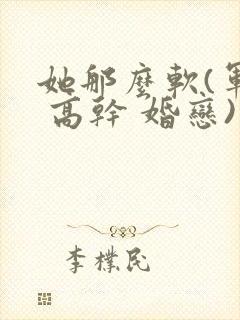 她那麼軟(軍
高幹 婚戀)
李樸民